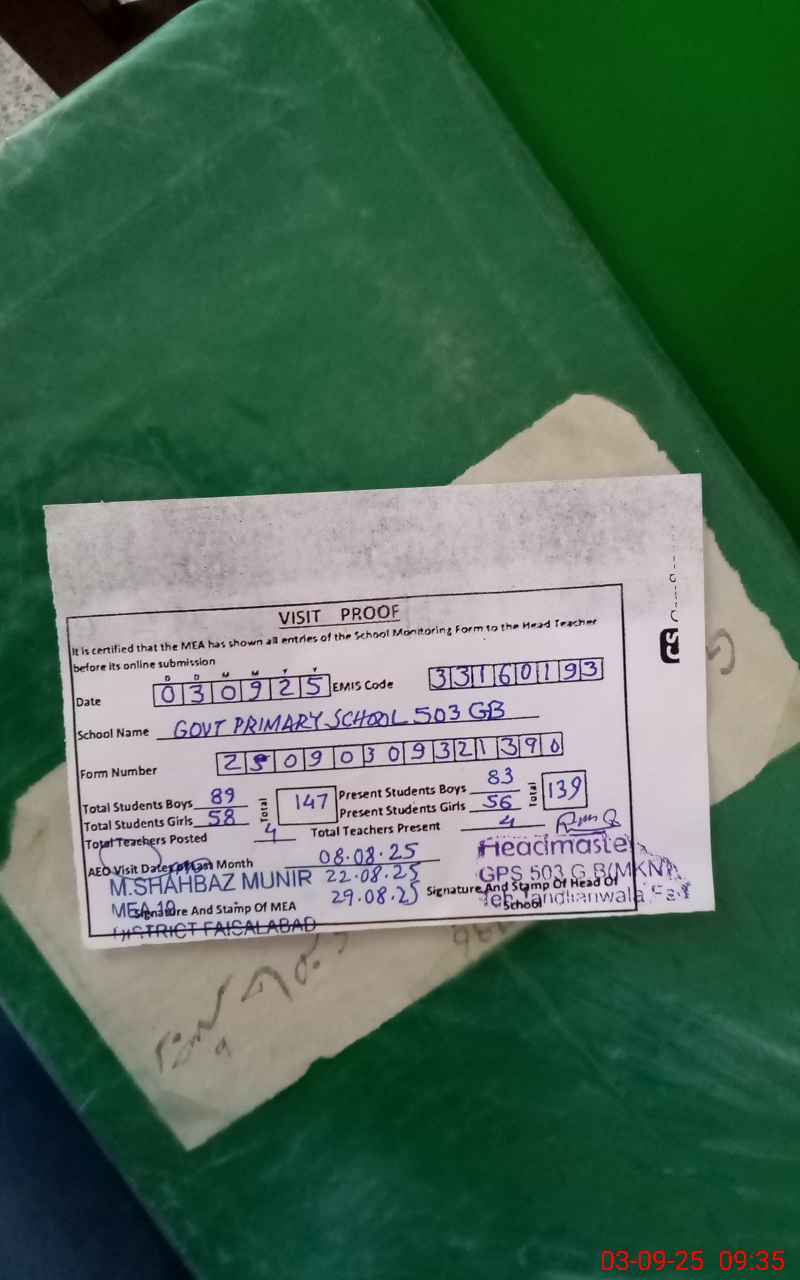 VISIT PROOF
It is certified that the MEA has shown all entries of the School Monitoring Form to the Head Teacher
before its online submission
D D M M Y Y
Date 030925 EMIS Code 33160193
School Name GOVT PRIMARY SCHOOL 503 GB
Form Number 25090309321390
Total Students Boys 89 Total 147 Present Students Boys 83 Total 139
Total Students Girls 58 Present Students Girls 56
Total Teachers Posted 4 Total Teachers Present 4
AEO Visit Date Last Month 08.08.25
22.08.25
29.08.25
M.SHAHBAZ MUNIR
MEA 19
DISTRICT FAISALABAD
Signature And Stamp Of MEA
Headmaster
GPS 503 G.B(MKN)
Teh. Tandlianwala
Signature And Stamp Of Head Of
School
CS
03-09-25 09:35